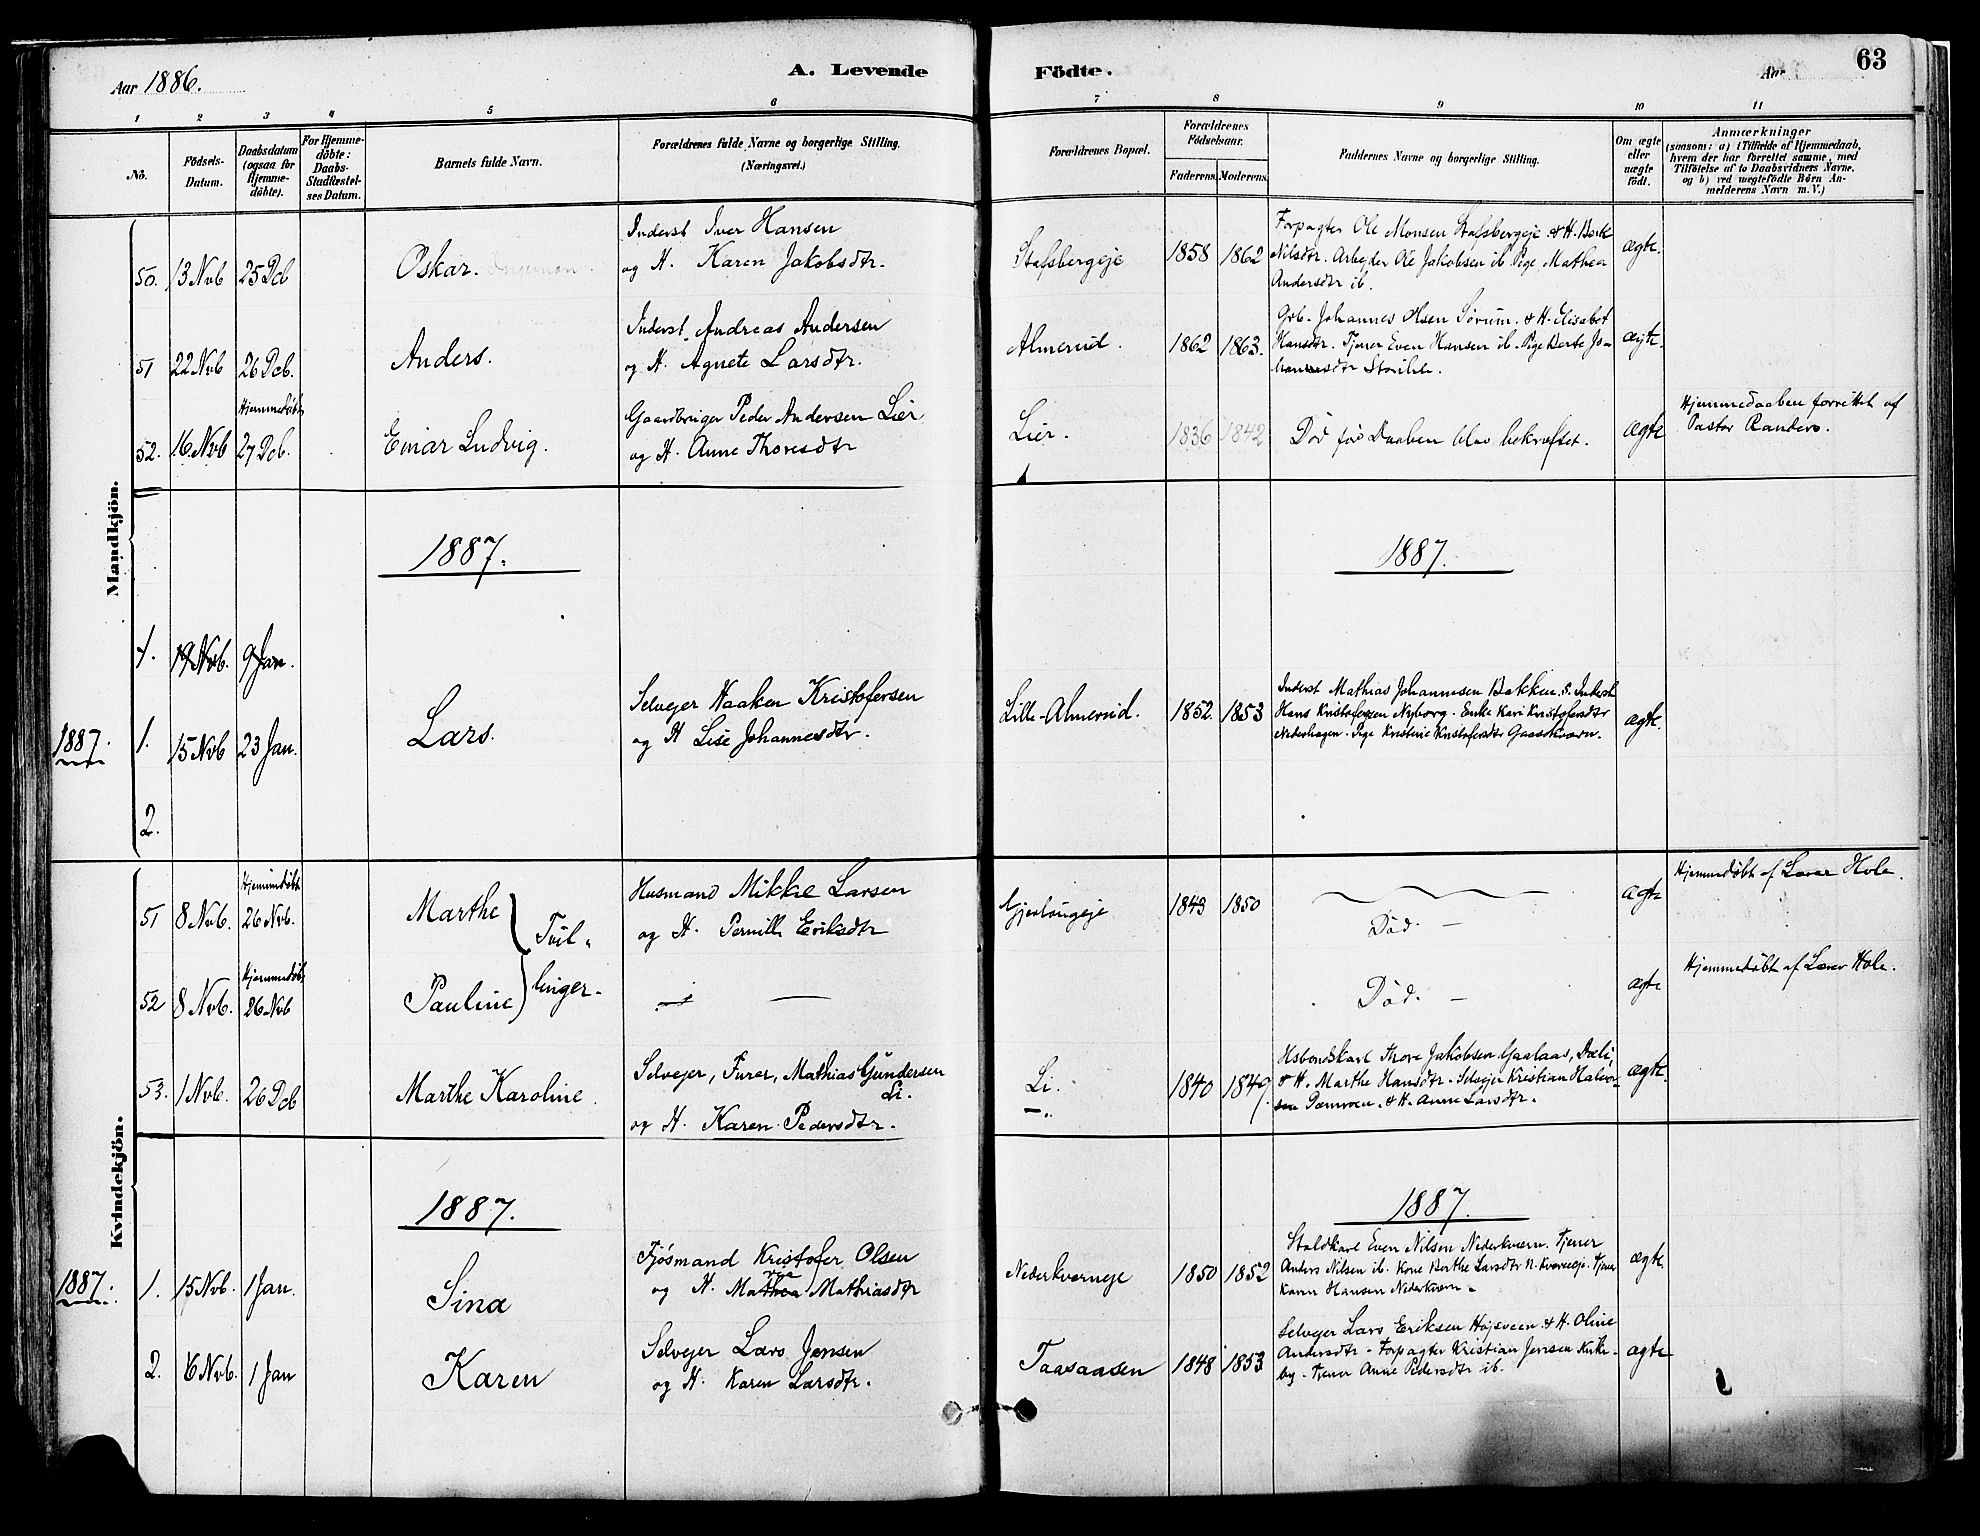 Aar 1886.
A. Levende
Födte.
Aar
63
1
2
3
4
5
6
7
8
9
10
11
No.
Födsels-Datum.
Daabsdatum (ogsaa for Hjemme-döbte).
For Hjemme-döbte: Daabs-Stadfæstel-ses Datum.
Barnets fulde Navn.
Forældrenes fulde Navne og borgerlige Stilling.
(Næringsvei.)
Forældrenes Bopæl.
Forældrenes Födselsaar.
Faderens.
Moderens.
Faddernes Navne og borgerlige Stilling.
Om ægte eller uægte födt.
Anmærkninger
(saasom: a) i Tilfælde af Hjemmedaab,
hvem der har forrettet samme, med
Tilföielse af to Daabsvidners Navne.
og b) ved uægtefödte Börn An-
melderens Navn m.V.)
Mandkjön.
50. 13 Nvb 25 Dcb Oskar. Ingeman.
Inderst Iver Hansen
og H. Karen Jakobsdtr.
Stafsbergeje 1858 1862
Forpagter Ole Monsen Stafsbergeje & H. Berte
Nilsdtr. Arbejder Ole Jakobsen ib. Pige Mathea
Andersdtr ib.
ægte.
51 22 Nvb 26 Dcb. Anders.
Inderst Andreas Andersen
og H. Agnete Larsdtr.
Almerud. 1862 1863.
Grb. Johannes Olsen Sörum. & H. Elisabet
Hansdtr. Tjener Even Hansen ib. Pige Berte Jo-
hannesdtr
ægte.
52. 16 Nvb Hjemmedöbt 27 Dcb. Einar Ludvig.
Gaardbruger Peder Andersen Lier
og H. Anne Thoresdtr
Lier. 1836 1842
Död för Daaben blev bekræftet.
ægte
Hjemmedaaben forrettet af
Pastor Randers.
1887.
1887.
1. 19 Nvb. 9 Jan.
1887.
1. 15 Nvb 23 Jan. Lars.
Selvejer Haaken Kristofersen
og H Lise Johannesdtr.
Lille-Almerud. 1852. 1853
Inderst Mathias Johannesen Bakken. S. Inderst
Hans Kristofersen Nyborg. Enke Kari Kristofersdtr
Nederhagen. Pige Kristine Kristofersdtr
ægte.
2.
Kvindekjön.
51 8 Nvb. Hjemmedöbt 26 Nvb. Marthe } Tvil-
Husmand Mikkel Larsen
og H. Pernille Eriksdtr
1843 1850
Död. —
ægte
Hjemmedöbt af Lærer Hole.
52 8 Nvb. Hjemmedöbt 26 Nvb Pauline } linger.
Död. —
ægte
Hjemmedöbt af Lærer Hole.
53. 1 Nvb. 26 Dcb Marthe Karoline.
Selvejer, Furer, Mathias Gundersen
Li.
og H. Karen Pedersdtr.
Li. 1840 1849.
Husbondskarl Thore Jakobsen Gaalaas, Dæli,
& H. Marthe Hansdtr. Selvejer Kristian Halvor-
sen & H. Anne Larsdtr.
ægte.
1887.
1887.
1887.
1. 15 Nvb. 1 Jan. Sina
Fjösmand Kristofer Olsen
og H. Mathea Mathiasdtr
Nederkverneje 1850 1852
Staldkarl Even Nilsen Nederkværn. Tjener
Anders Nilsen ib. Kone Berthe Larsdtr N. Kverneje. Tjener
Karen Hansen Nederkværn.
ægte
2. 6 Nvb. 1 Jan Karen
Selvejer Lars Jensen
og H. Karen Larsdtr.
Taasaasen 1848 1853
Selvejer Lars Eriksen Höjsveen & H. Oline
Andersdtr. Forpagter Kristian Jensen Kirke-
by. Tjener Anne Pedersdtr ib.
ægte